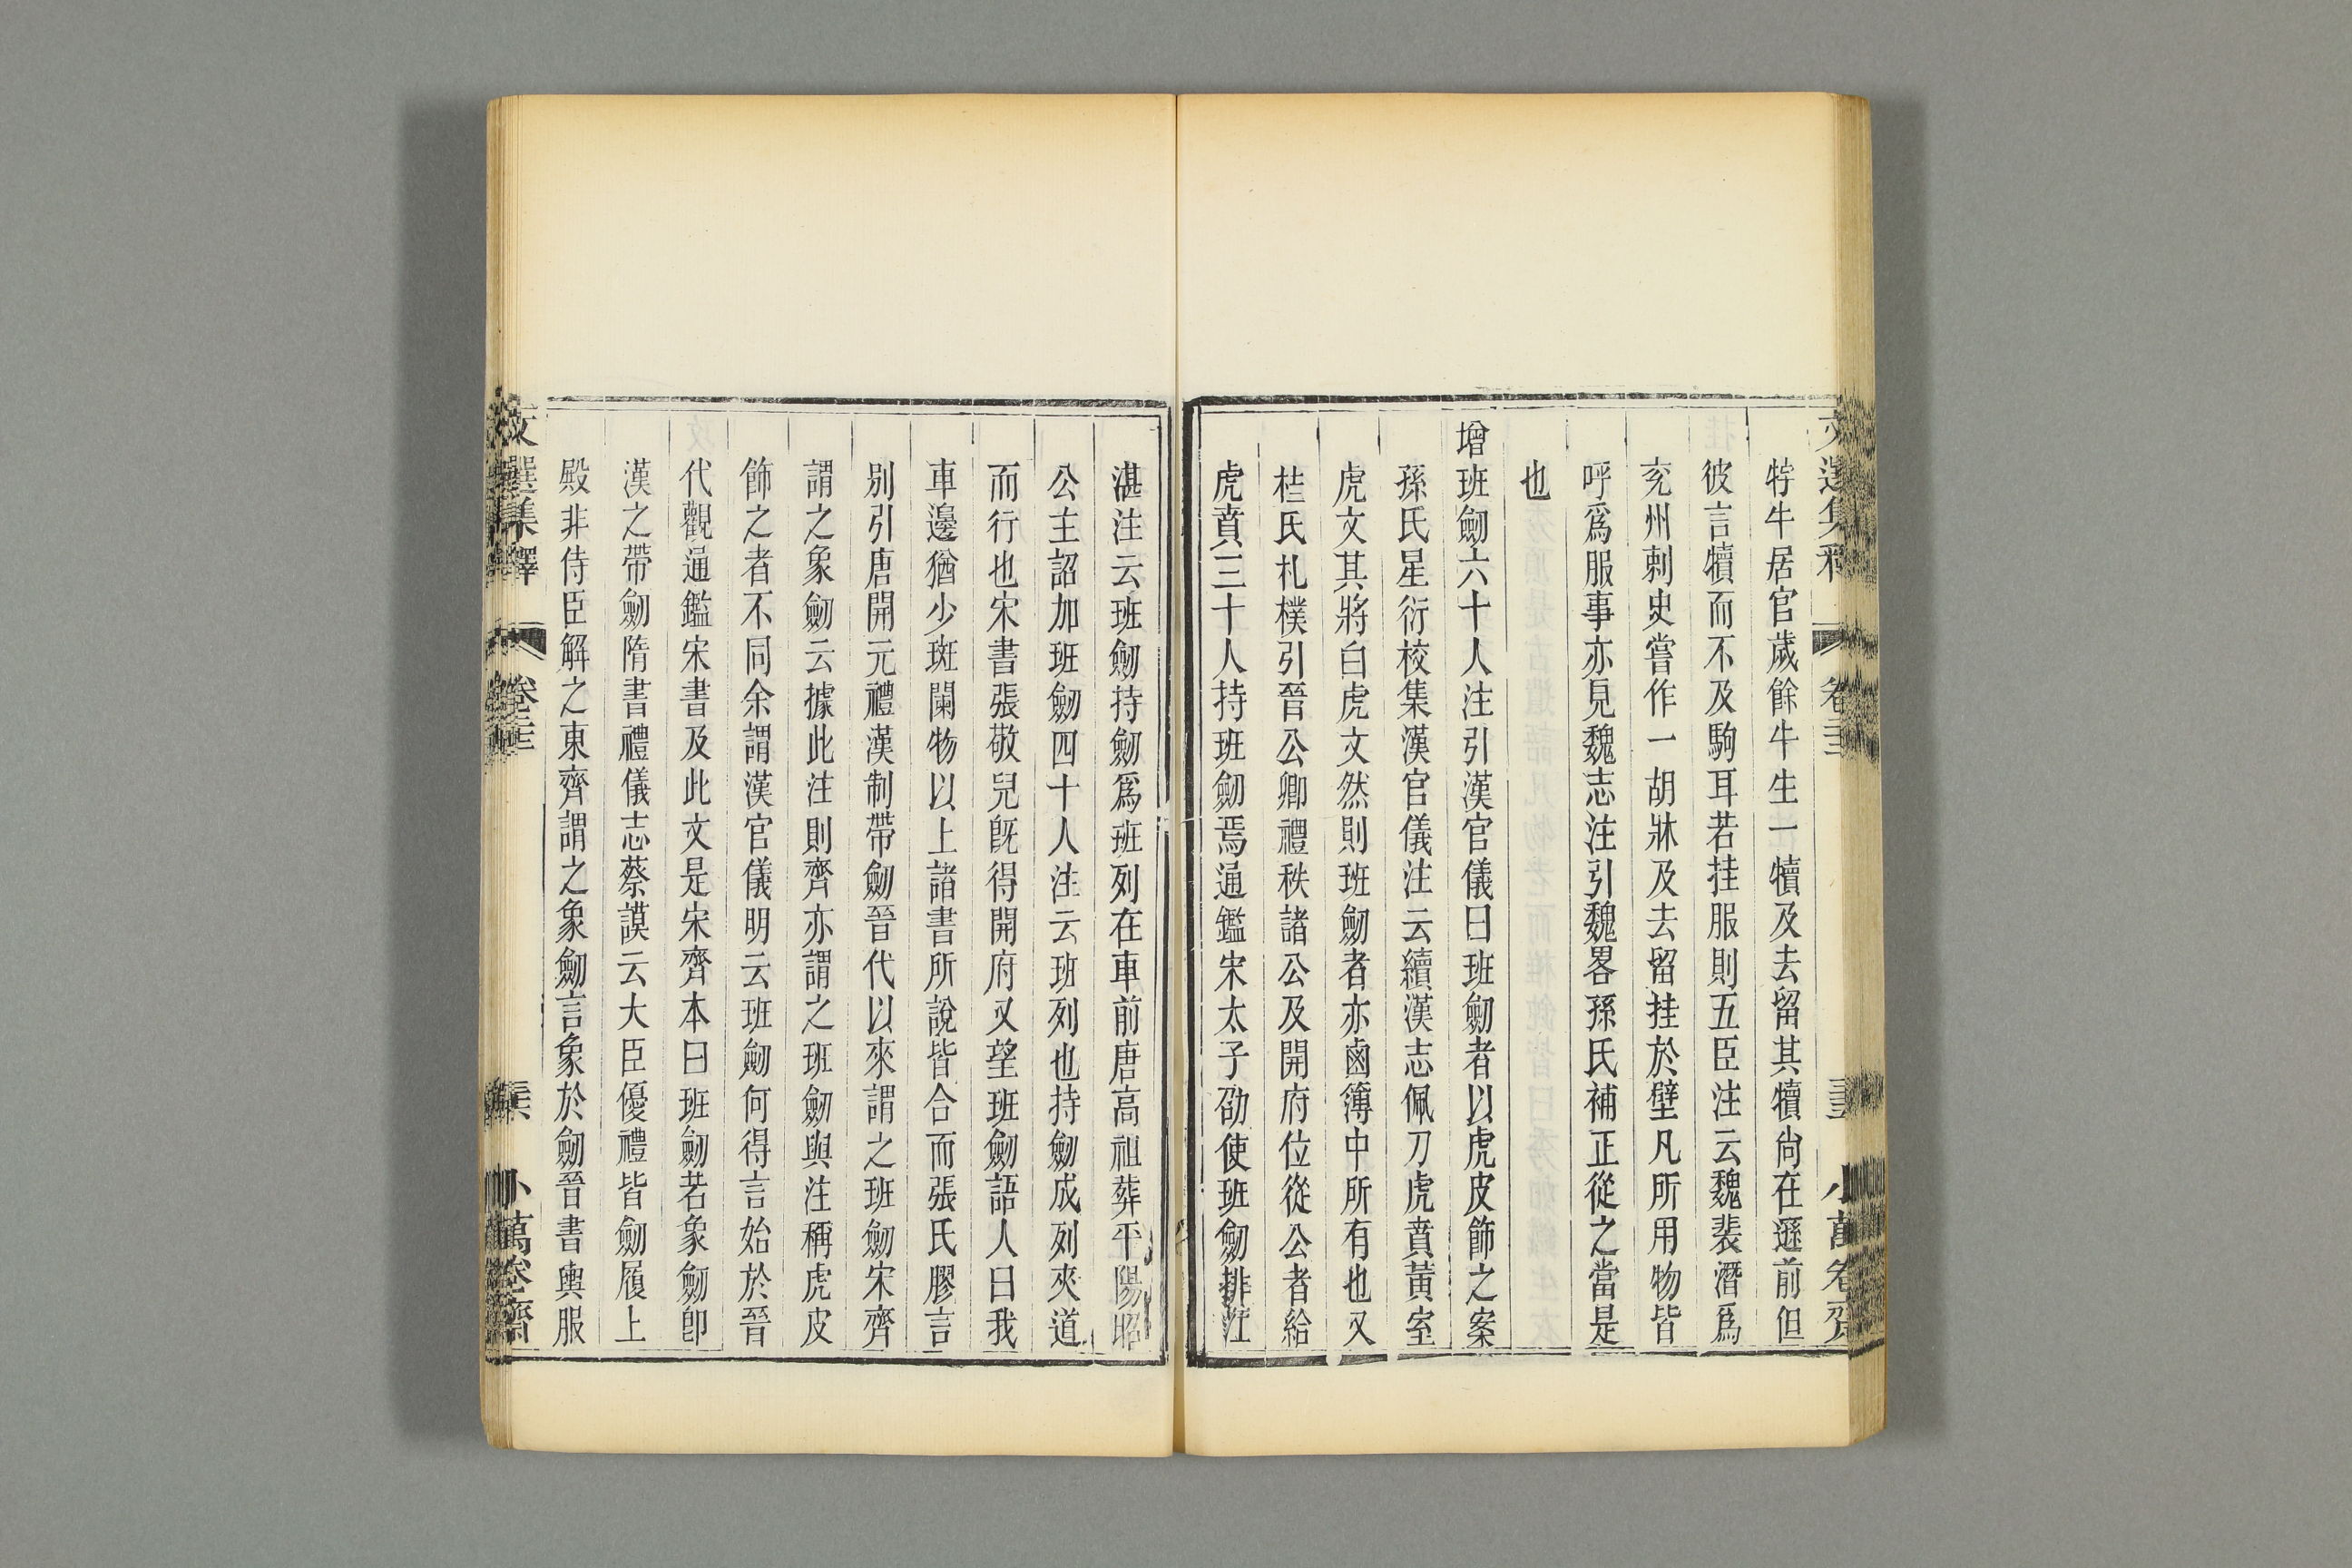 特牛居官歲餘牛生一犢及去留其犢尙在遜前但
彼言犢而不及駒耳若挂服則五臣注云魏裴潛爲
兖州刺史嘗作一胡牀及去留挂於壁凡所用物皆
呼爲服事亦見魏志注引魏畧孫氏補正從之當是
也
增班劒六十人注引漢官儀曰班劒者以虎皮飾之案
孫氏星衍校集漢官儀注云續漢志佩刀虎賁黃室
虎文其將白虎文然則班劒者亦鹵簿中所有也又
桂氏札樸引晉公卿禮秩諸公及開府位從公者給
虎賁三十人持班劒焉通鑑宋太子劭使班劒排江
湛注云班劒持劒爲班列在車前唐高祖葬平陽昭
公主詔加班劒四十人注云班列也持劒成列夾道
而行也宋書張敬兒旣得開府又望班劒語人曰我
車邊猶少斑闌物以上諸書所說皆合而張氏膠言
別引唐開元禮漢制帶劒晉代以來謂之班劒宋齊
謂之象劒云據此注則齊亦謂之班劒與注稱虎皮
飾之者不同余謂漢官儀明云班劒何得言始於晉
代觀通鑑宋書及此文是宋齊本曰班劒若象劒卽
漢之帶劒隋書禮儀志蔡謨云大臣優禮皆劒履上
殿非侍臣解之東齊謂之象劒言象於劒晉書輿服
文選集釋 卷 小萬卷齋